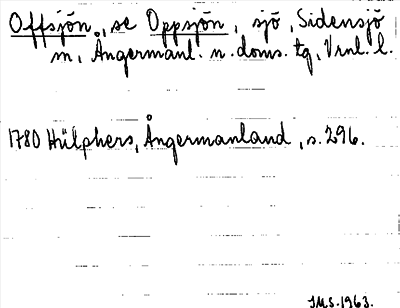 Offsjön, se Oppsjön, sjö, Sidensjö
m, Ångermanl. n. doms. tg, Vrnl. l.
1780 Hülphers, Ångermanland, s. 296.
IMS. 1963.